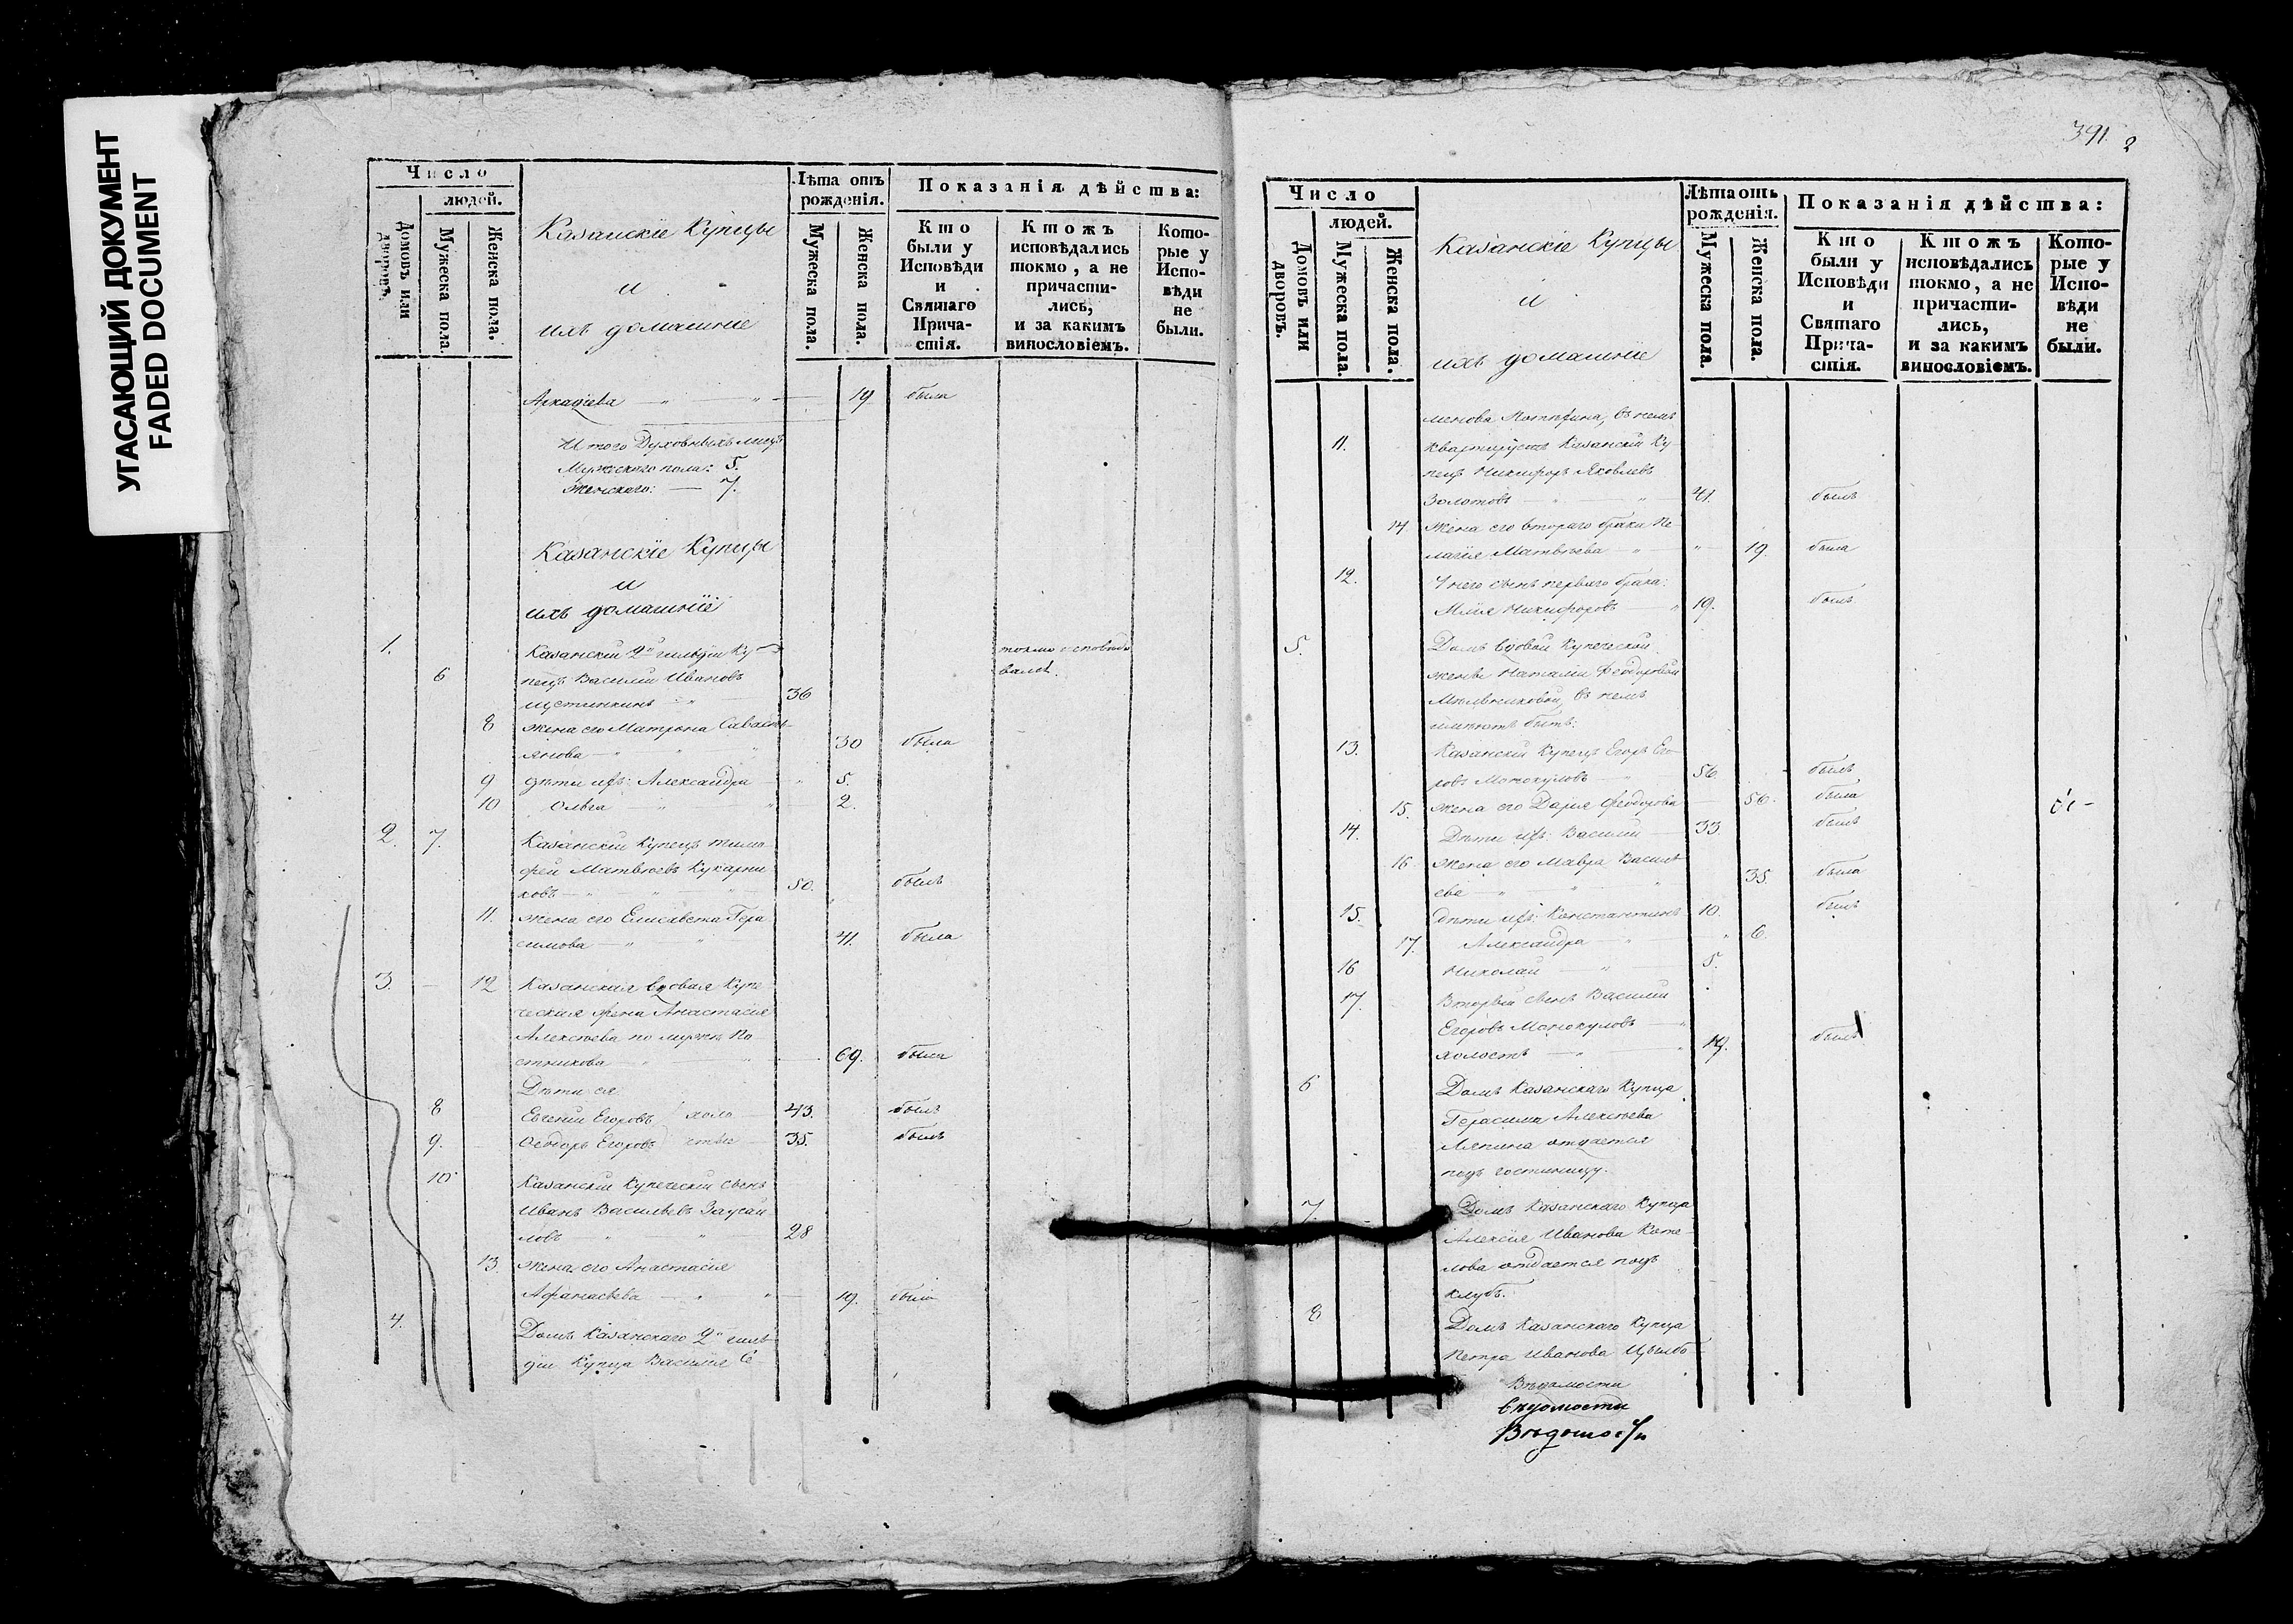 УГАСАЮЩИЙ ДОКУМЕНТ
FADED DOCUMENT
Число
людей.
Домовъ или дворовъ.
Мужеска пола.
Женска пола.
Казанскіе Купцы
и
ихъ домашніе
Лѣта отъ рожденія.
Мужеска пола.
Женска пола.
Показанія дѣйства:
Кто были у Исповѣди и Святаго Причастія.
Ктожъ исповѣдались токмо, а не причастились, и за какимъ винословіемъ.
Которые у Исповѣди не были.
Аркадіева 19 была
Итого Духовныхъ лицъ
Мужескаго пола: 5.
Женскаго: — 7.
Казанскіе Купцы
и
ихъ домашніе
1. Казанскій 2й гильдіи Ку- токмо исповѣдо
6 пецъ Василій Ивановъ вался.
Щетинкинъ 36
8 Жена его Матрена Савасть-
янова 30 была
9 Дѣти ихъ: Александра 5.
10 Ольга 2.
2. 7. Казанскій Купецъ Тимо-
фей Матвѣевъ Кукарни
ковъ 50. былъ
11. Жена его Елисавета Гера
симова 41. была
3. — 12 Казанская вдовая Купе
ческая жена Анастасія
Алексѣева по мужѣ По
стникова 69. была
Дѣти ея
8 Евгеній Егоровъ холо 43. былъ
9. Ѳеодоръ Егоровъ стые 35. былъ
10 Казанскій Купеческій сынъ
Иванъ Васильевъ Заусай
ловъ 28
13. Жена его Анастасія
Афанасьева 19. была
4. Домъ Казанскаго 2й гиль
діи Купца Василія Се-
391. 2
Число
людей.
Домовъ или дворовъ.
Мужеска пола.
Женска пола.
Казанскіе Купцы
и
ихъ домашніе
Лѣта отъ рожденія.
Мужеска пола.
Женска пола.
Показанія дѣйства:
Кто были у Исповѣди и Святаго Причастія.
Ктожъ исповѣдались токмо, а не причастились, и за какимъ винословіемъ.
Которые у Исповѣди не были.
менова въ немъ
11. квартируетъ Казанскій Ку-
пецъ Никифоръ Яковлевъ
Золотовъ 41. былъ
14. Жена его втораго брака Пе-
лагія Матвѣева 19. была
12. У него сынъ перваго брака:
Илія Никифоровъ 19. былъ
5. Домъ вдовой Купеческой
жены Наталіи Феодоровой
Мѣльниковой, въ немъ
имѣютъ быть:
13. Казанскій Купецъ Егоръ Его-
ровъ Мотокуловъ 56 былъ
15. Жена его Дарія Феодорова 56. была
14. Дѣти ихъ: Василій 33. былъ
16 Жена его Мавра Василь
ева 35. была
15. Дѣти ихъ: Константинъ 10. былъ
17. Александра 6.
16 Николай 5.
17. Вторый сынъ Василій
Егоровъ Мотокуловъ
холостъ 19. былъ
6 Домъ Казанскаго Купца
Герасима Алексѣева
отдается
подъ гостиницу.
7 Домъ Казанскаго Купца
Алексія Иванова Коте-
лова отдается подъ
клубъ.
8 Домъ Казанскаго Купца
Петра Иванова
Вѣдомости
Вѣдомости
Вѣдомости